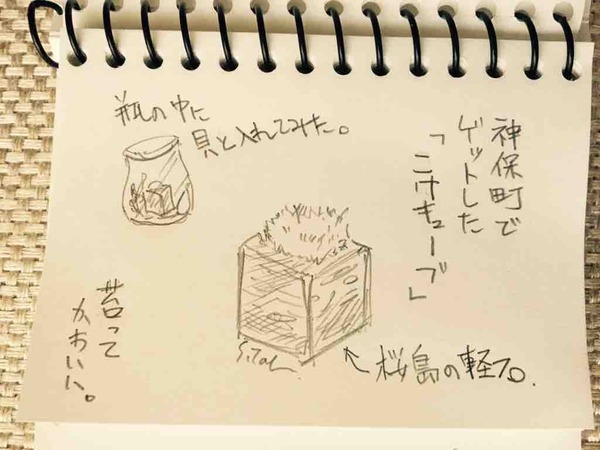 神保町で
ゲットした
「こけキューブ」
瓶の中に
貝と入れてみた。
桜島の軽石.
苔って
かわいい。